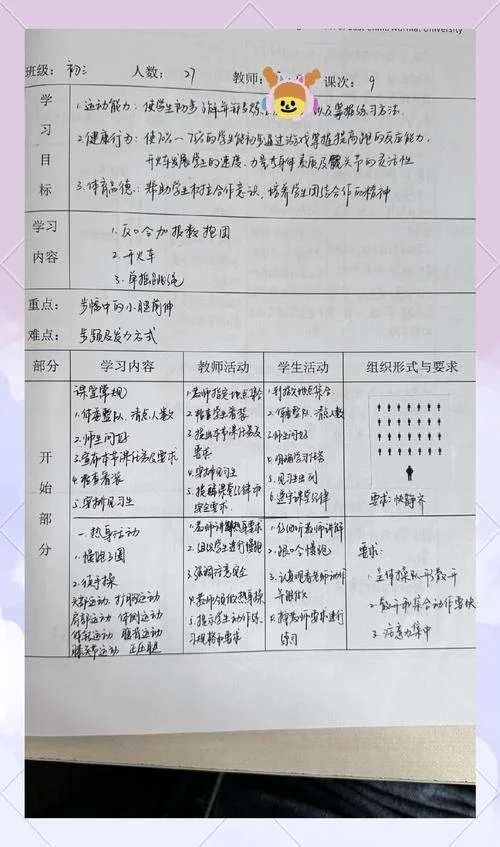 East China Normal University
班级： 初三 人数： 27 教师： 课次： 9
学习目标
1.运动能力：使学生初步了解 以及掌握练习方法
2.健康行为：使70%-75%的学生能初步通过游戏掌握提高跑的反应能力，
开火车发展学生的速度、力量 身体素质及髋关节的灵活性
3.体育品德：帮助学生树立合作意识，培养学生团结合作的精神
学习内容
1.反口令加报数抱团
2.开火车
3.单摇跳绳
重点： 步幅中的小腿前伸
难点： 步频及发力方式
部分 学习内容 教师活动 学生活动 组织形式与要求
开始部分
课堂常规
1.体委整队、清点人数
2.师生问好
3.宣布本节课任务及要求
4.检查着装
5.安排见习生
1.老师指定地点集合
2.检查学生着装
3.提出本节课任务及
要求
4.安排见习生
5.提醒课堂纪律和
安全要求
1.到指定地点集合
2.体委整队、清点人数
3.师生问好
4.明确学习任务
5.见习生出列
6.遵守课堂纪律
要求：快静齐
一.热身活动
1.慢跑3圈
2.徒手操
头部运动、扩胸运动
肩部运动 体侧运动
体转运动 腹背运动
膝关节运动 正压腿
1.老师讲解热身要求
2.组织学生进行慢跑
3.强调注意安全
4.老师领做热身操
5.提示学生动作练
习规格和要求
1.认真听老师讲解
2.跟口令慢跑
3.认真观看老师动作
并跟做
4.按老师要求进行
练习
要求：
1.呈体操队形散开
2.散开和集合动作要快
3.注意力集中